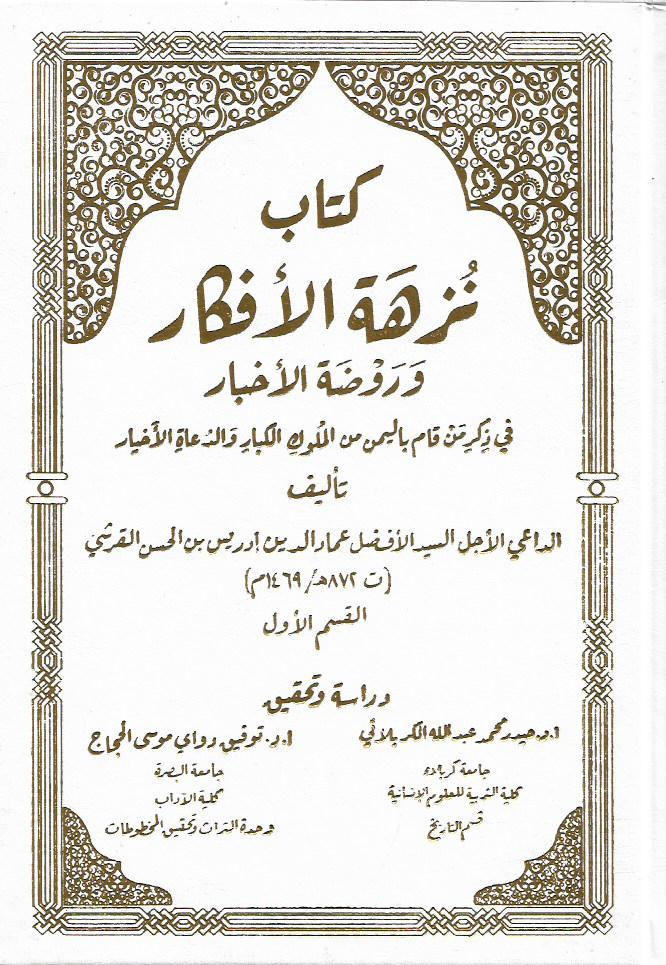 كتاب
نُزهَة الأفكار
وَرَوْضَة الأخبار
في ذِكرِ مَنْ قام باليمن من المُلوكِ الكبارِ وَالدُعاةِ الأخيار
تأليف
الداعي الأجل السيد الأفضل عماد الدين إدريس بن الحسن القرشي
(ت ٨٧٢هـ/ ١٤٦٩م)
القسم الأول
دراسة وتحقيق
أ.د. حيدر محمد عبد الله الكربلائي
جامعة كربلاء
كلية التربية للعلوم الإنسانية
قسم التاريخ
أ.د. توفيق دواي موسى الحجاج
جامعة البصرة
كلية الآداب
وحدة التراث وتحقيق المخطوطات